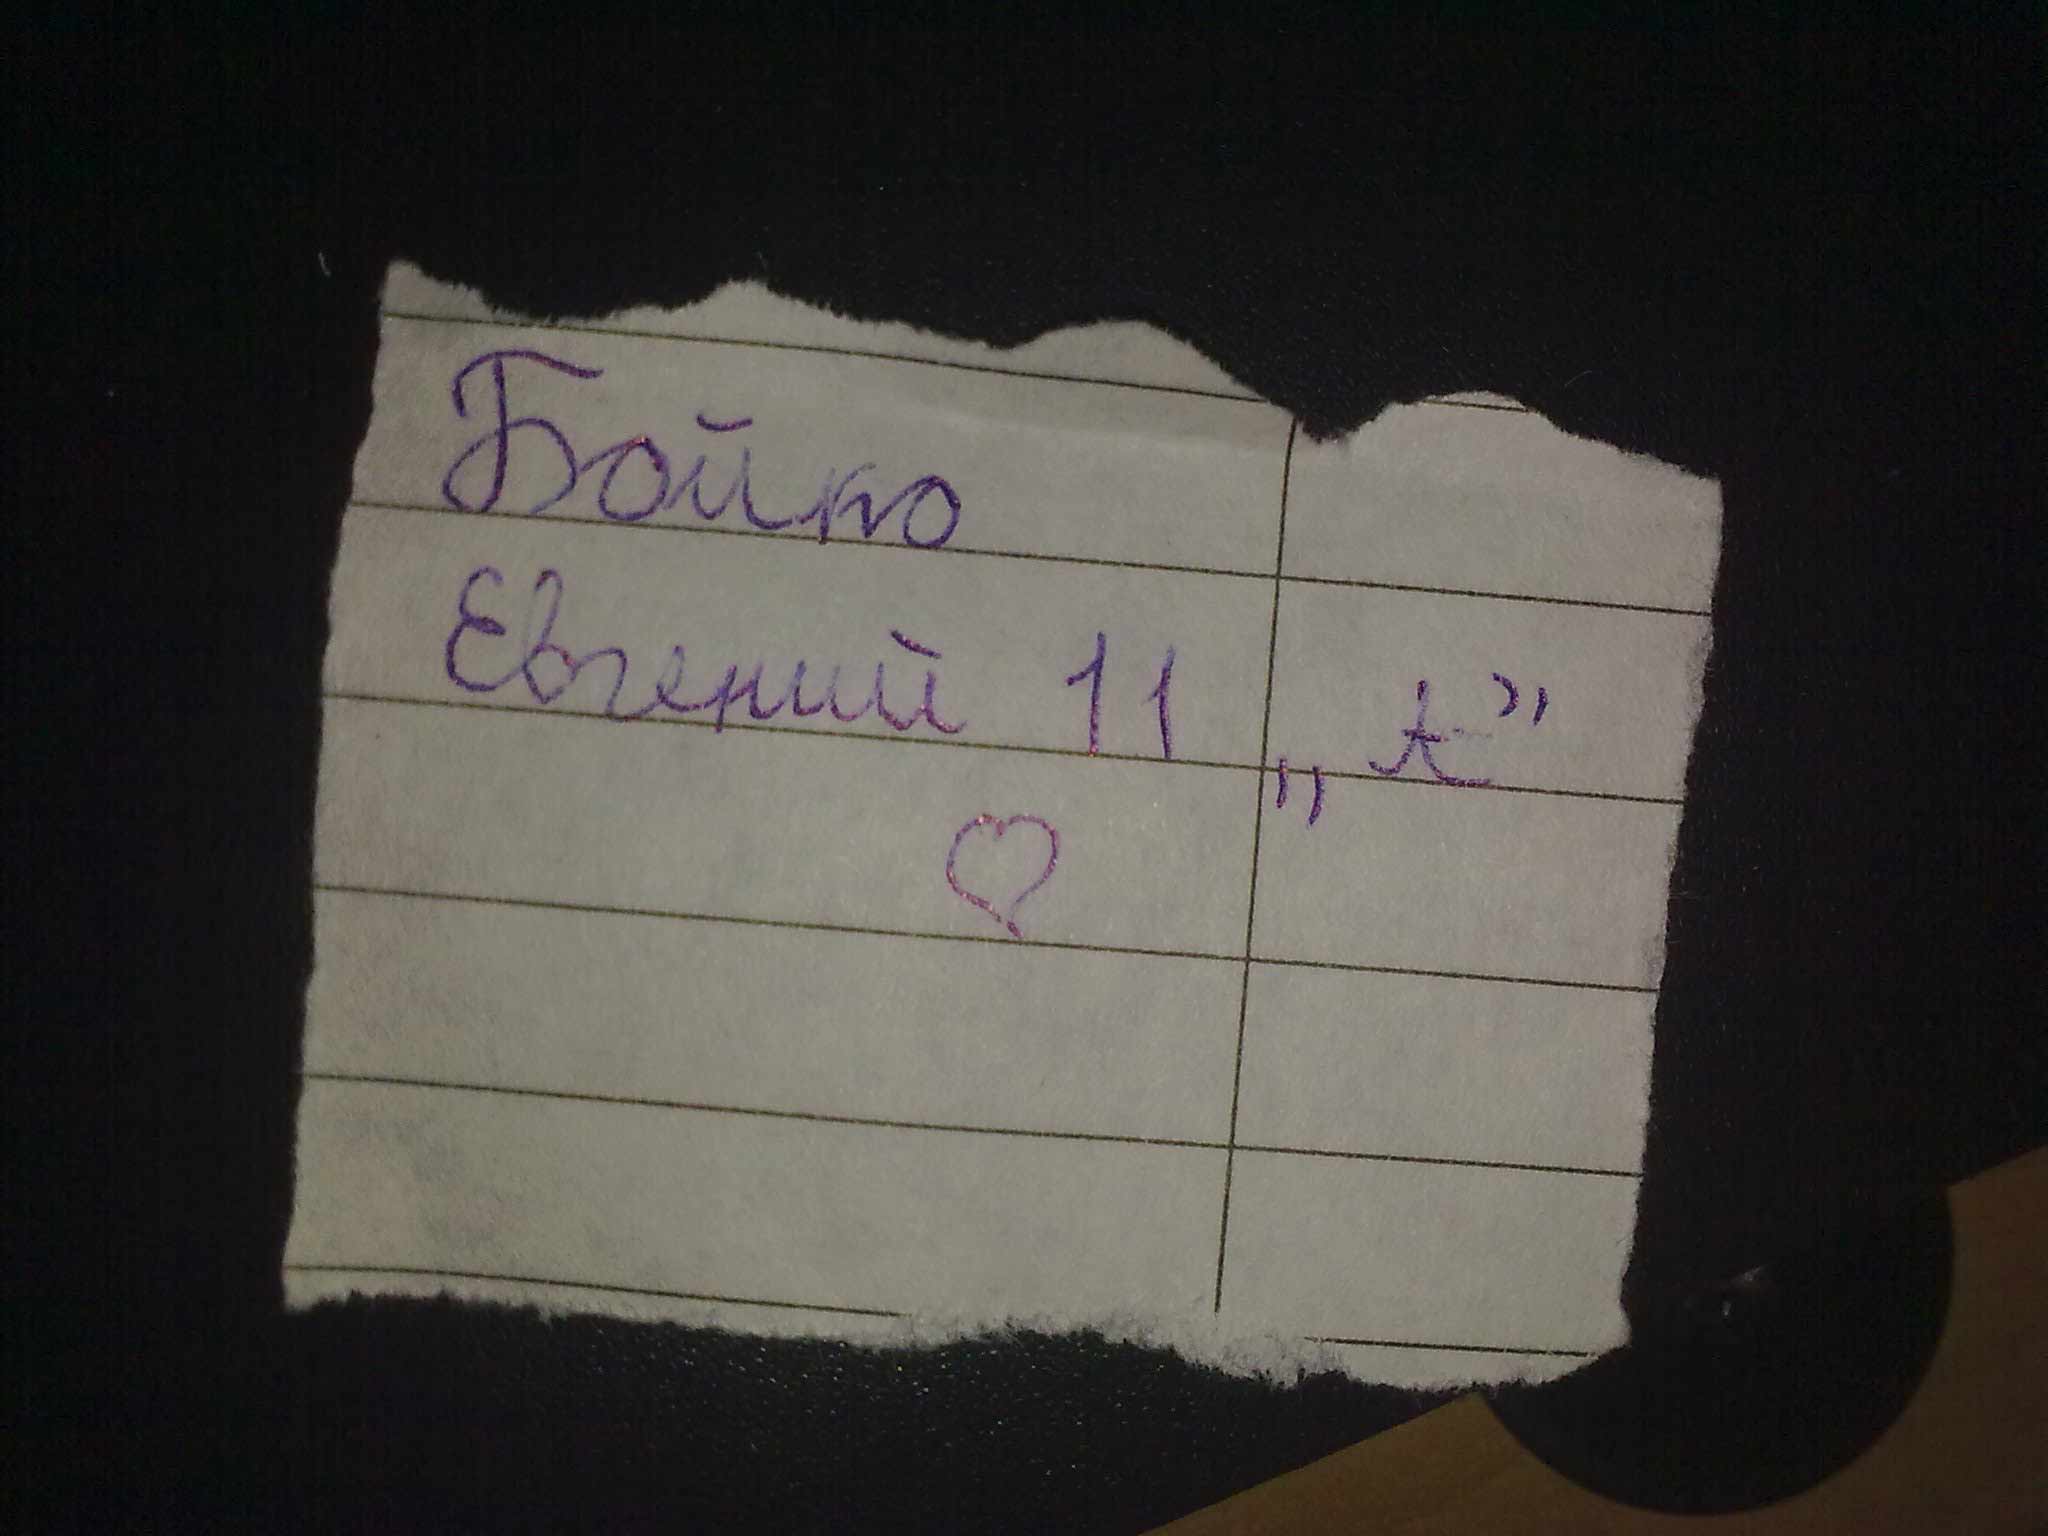 Бойко
Евгений 11 „t”